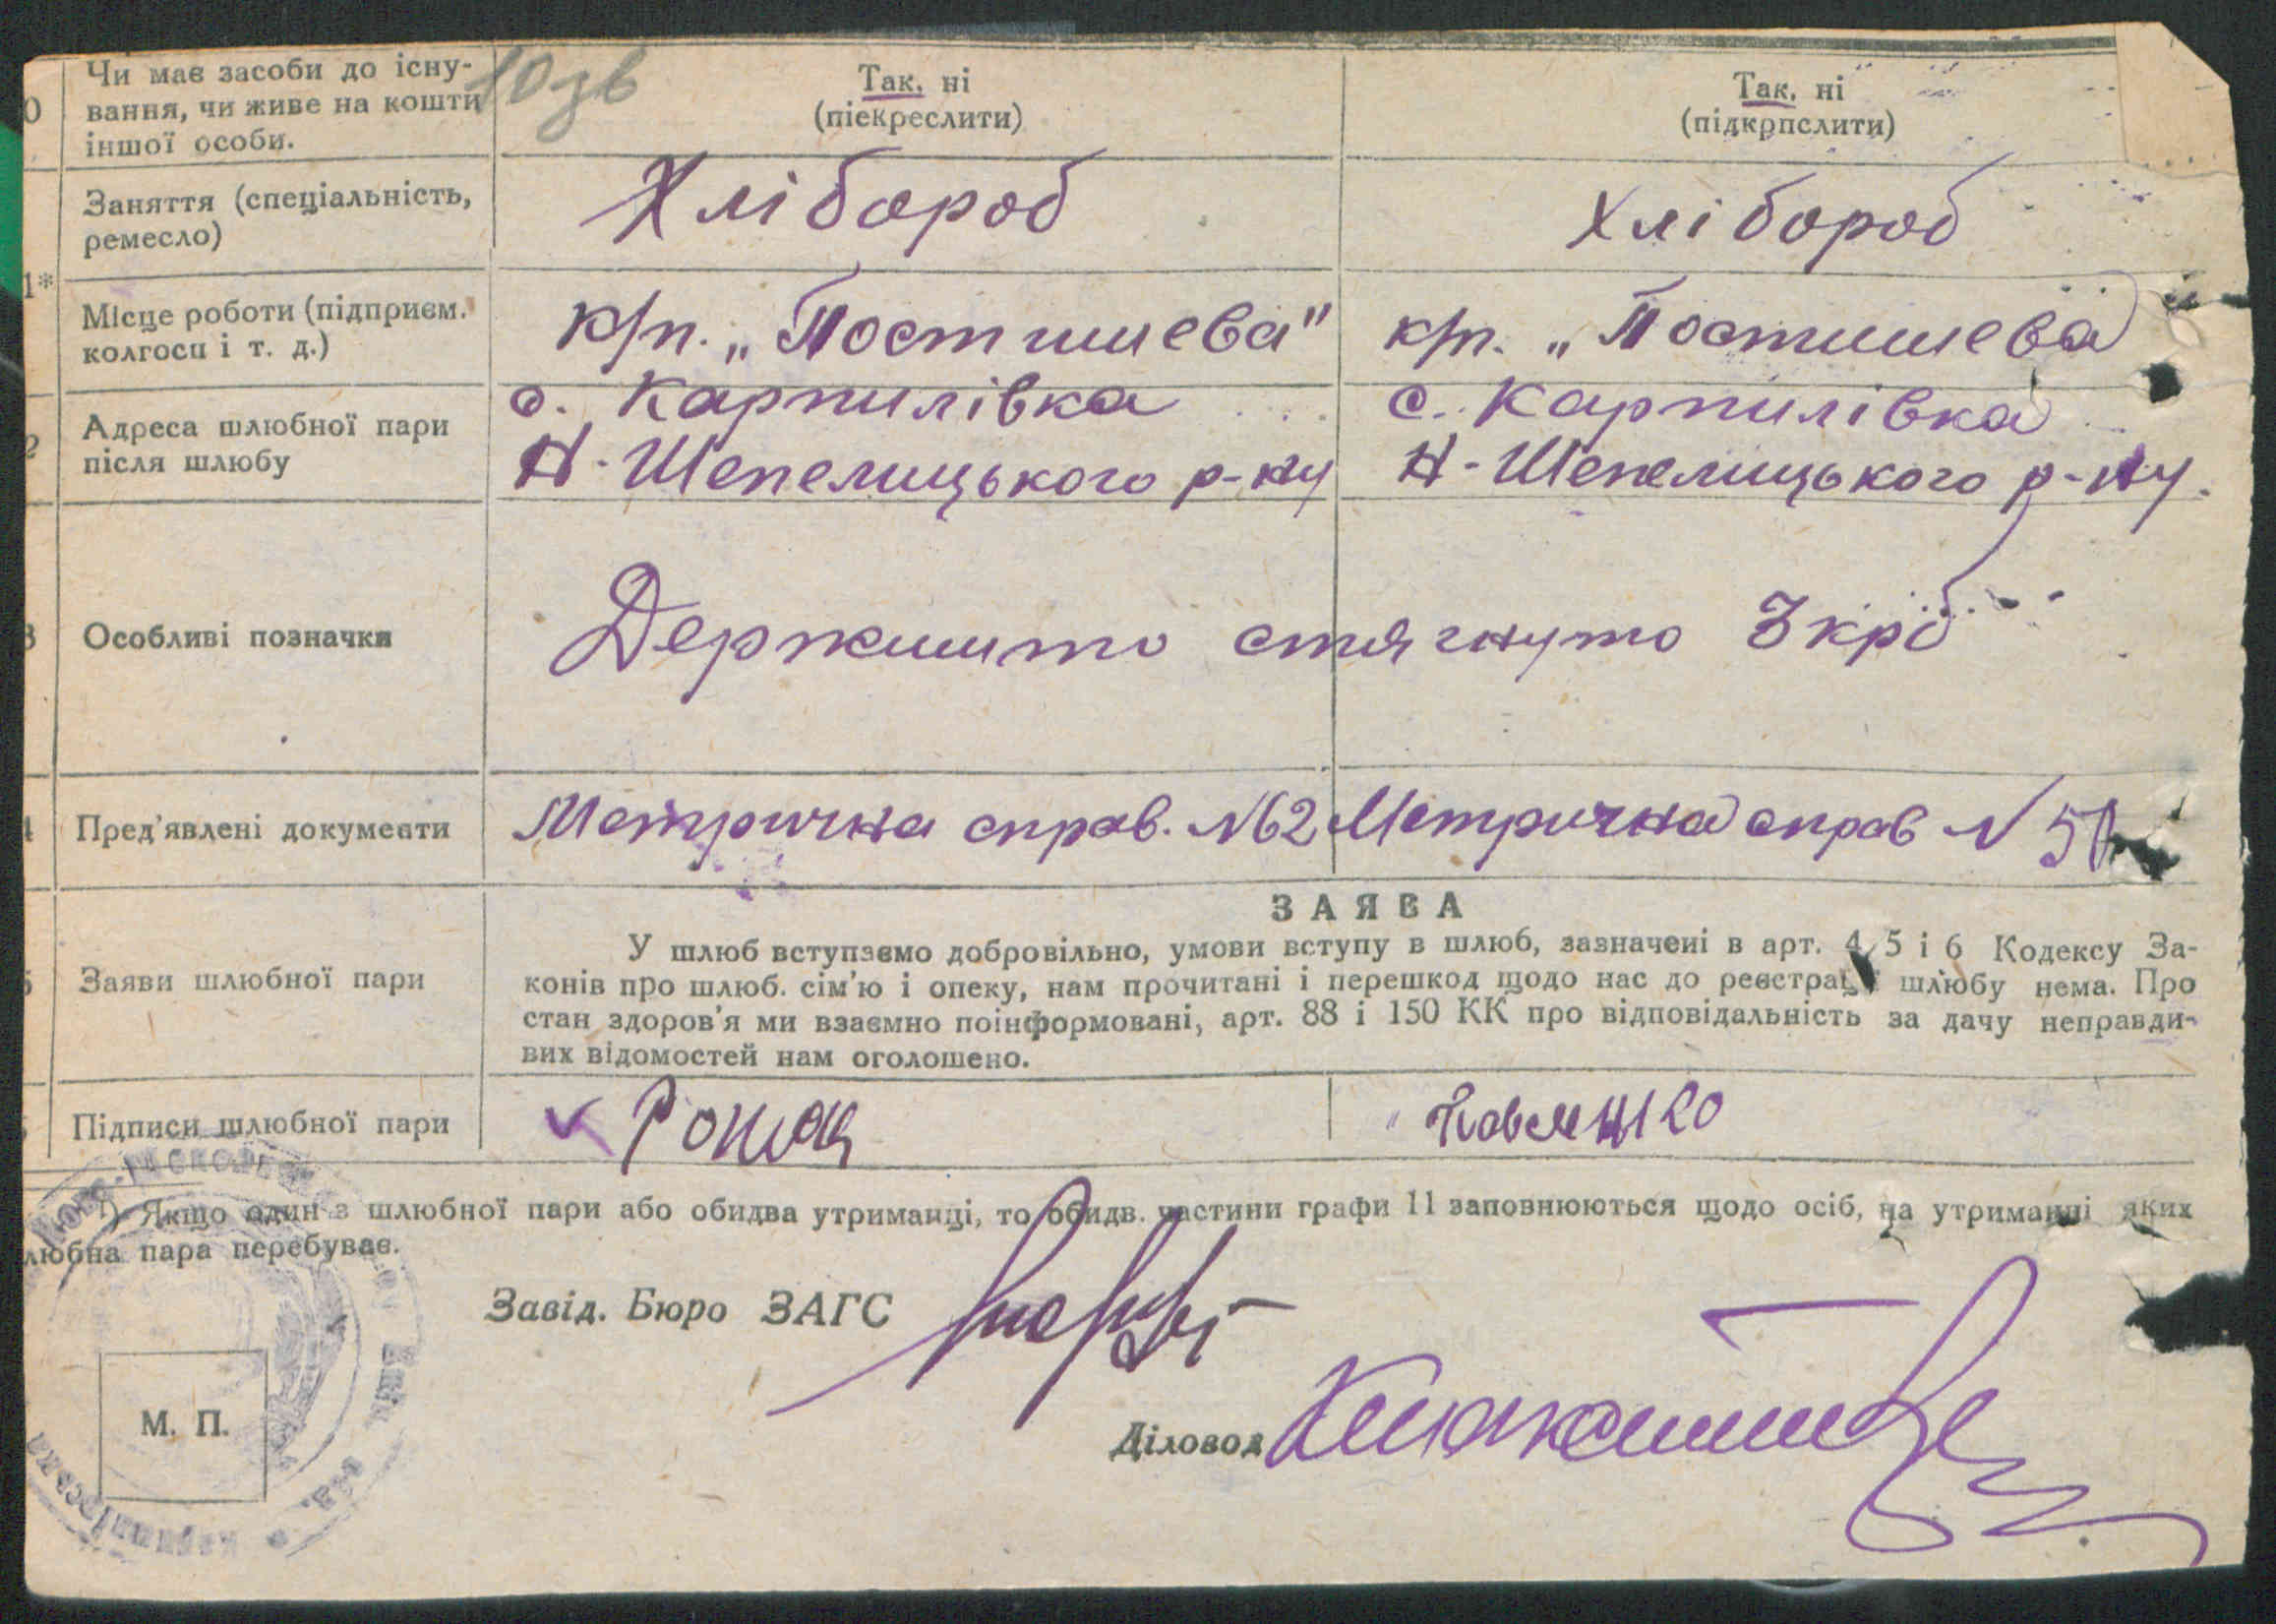 10зв
0 Чи має засоби до існу-
вання, чи живе на кошти
іншої особи.
Так, ні
(піекреслити)
Так, ні
(підкрпслити)
Заняття (спеціальність,
ремесло)
Хлібороб
Хлібороб
1*
Місце роботи (підприєм.
колгосп і т. д.)
к/п. „Постишева"
к/п. „Постишева
2 Адреса шлюбної пари
після шлюбу
с. Карпилівка
Н-Шепелицького р-ну
с. Карпилівка
Н-Шепелицького р-ну.
3 Особливі позначки
Держмито стягнуто 3крб
4 Пред'явлені документи
Метрична справ. №62
Метрична справ №
ЗАЯВА
5 Заяви шлюбної пари
У шлюб вступаємо добровільно, умови вступу в шлюб, зазначені в арт. 4, 5 і 6 Кодексу За-
конів про шлюб. сім'ю і опеку, нам прочитані і перешкод щодо нас до реєстрац шлюбу нема. Про
стан здоров'я ми взаємно поінформовані, арт. 88 і 150 КК про відповідальність за дачу неправди-
вих відомостей нам оголошено.
Підписи шлюбної пари
¹) Якщо один з шлюбної пари або обидва утриманці, то обидв. частини графи 11 заповнюються щодо осіб, на утриманні яких
любна пара перебуває.
Завід. Бюро ЗАГС
М. П.
Діловод